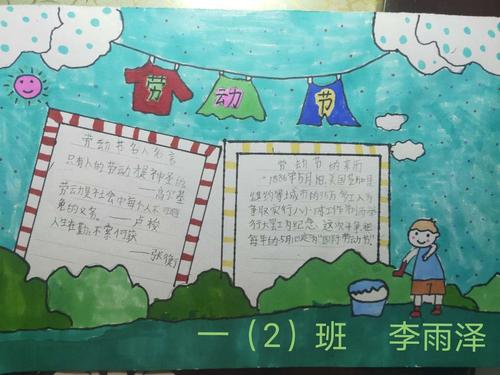 劳 动 节
劳动节名人名言
只有人的劳动才是神圣的
——高尔基
劳动是社会中每个人不可避
免的义务。——卢梭
人生在勤,不索何获
——张衡
劳动节的来历
1886年5月1日,美国芝加哥
等城市的35万多工人为
争取实行八小时工作制而举
行大罢工为纪念这次
每年的5月1
一(2)班 李雨泽